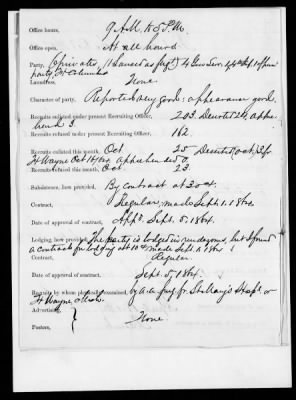 Office hours, 9 A.M. to 5 P.M.
Office open, At all hours
Party, 6 privates, (1 Leased as 4 Gen. Serv. 4
party, Ft Columbus
Laundress, None.
Character of party, Reported very good: appearance good.
Recruits enlisted under present Recruiting Officer, 203. Deserted 24, appre
hend 3.
Recruits refused under present Recruiting Officer, 162.
Recruits enlisted this month, Oct. 25 Deserted (Oct)
Ft Wayne Oct 14/64. apprehended 0.
Recruits refused this month, Oct. 23.
Subsistence, how provided, By contract at 30 ct.
Contract, Regular, made Sept 1. 1864.
Date of approval of contract, Appd. Sept. 5, 1864.
Lodging, how provided, The party is lodged in rendezvous, but I found
a contract for lodging at 10 made Sept 1. 1864
Contract, Regular.
Date of approval of contract, Sept. 5, 1864.
Recruits by whom physically examined, by Act. Surg. fr. St. Mary's Hospl. or
Ft Wayne, Mich.
Advertising,
None
Posters,